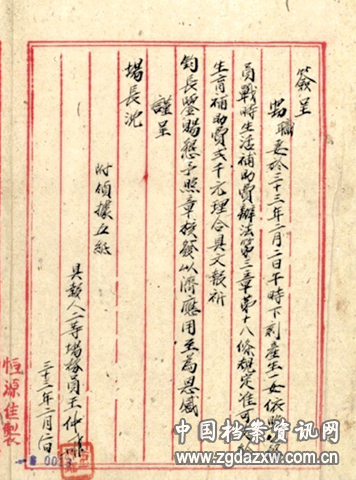 簽呈
竊職妻於三十三年二月二日午時下刻產生一女依照
員戰時生活補助費辦法第三章第十八條規定准可
生育補助費弍千元理合具文報祈
鈞長鑒賜懇予照章核發以濟應用至為恩感
謹呈
場長沈
附價據五紙
具報人二等場務員王仲
三十三年二月 日
恒源佳製
0013
中国档案资讯网
www.zgdazxw.com.cn